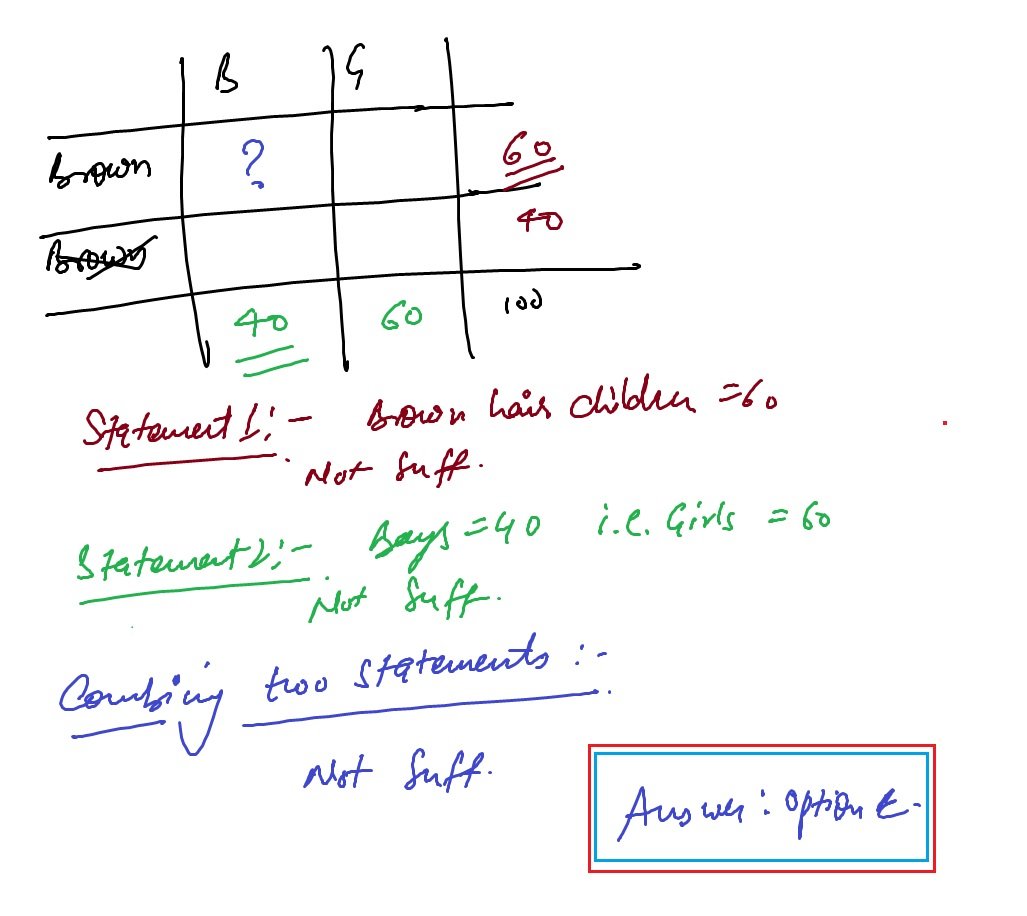 B G
Brown ? 60
Brown 40
40 60 100
Statement 1:- Brown hair children = 60
Not Suff.
Statement 2:- Boys = 40 i.e. Girls = 60
Not Suff.
Combining two statements :-
Not Suff.
Answer: option E.